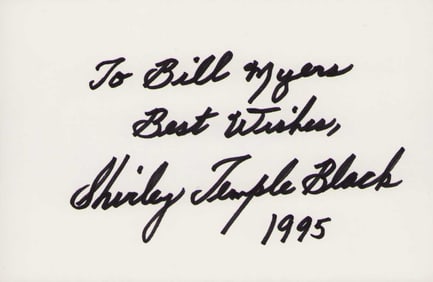 To Bill Myers
Best Wishes,
Shirley Temple Black
1995